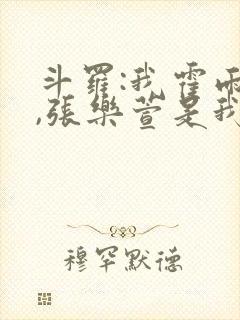 斗羅:我霍雨
,張樂萱是我
穆罕默德